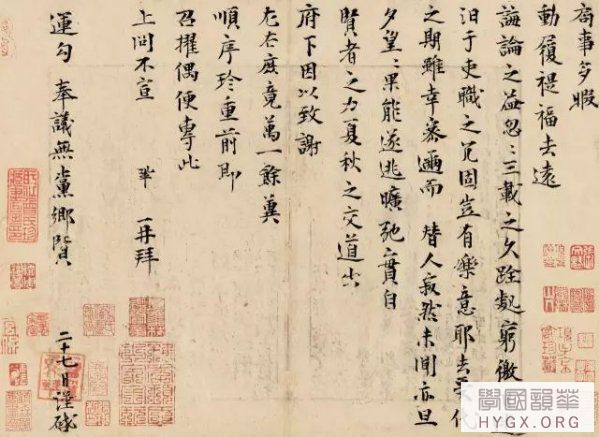 局事多暇
動履禔福去遠
誨論之益忽〻三載之久跧處窮徼
汨於吏職之冗固豈有樂意耶去受代
之期雖幸密邇而 替人寂然未聞亦旦
夕望〻果能遂逃曠弛實自
賢者之力夏秋之交道出
府下因以致謝
左右庶竟萬一餘冀
順序珍重前即
召擢偶便專此
上問不宣 鞏 再拜
運勾 奉議無黨鄉賢 二十七日謹啟
學國韻華
HYGX.ORG